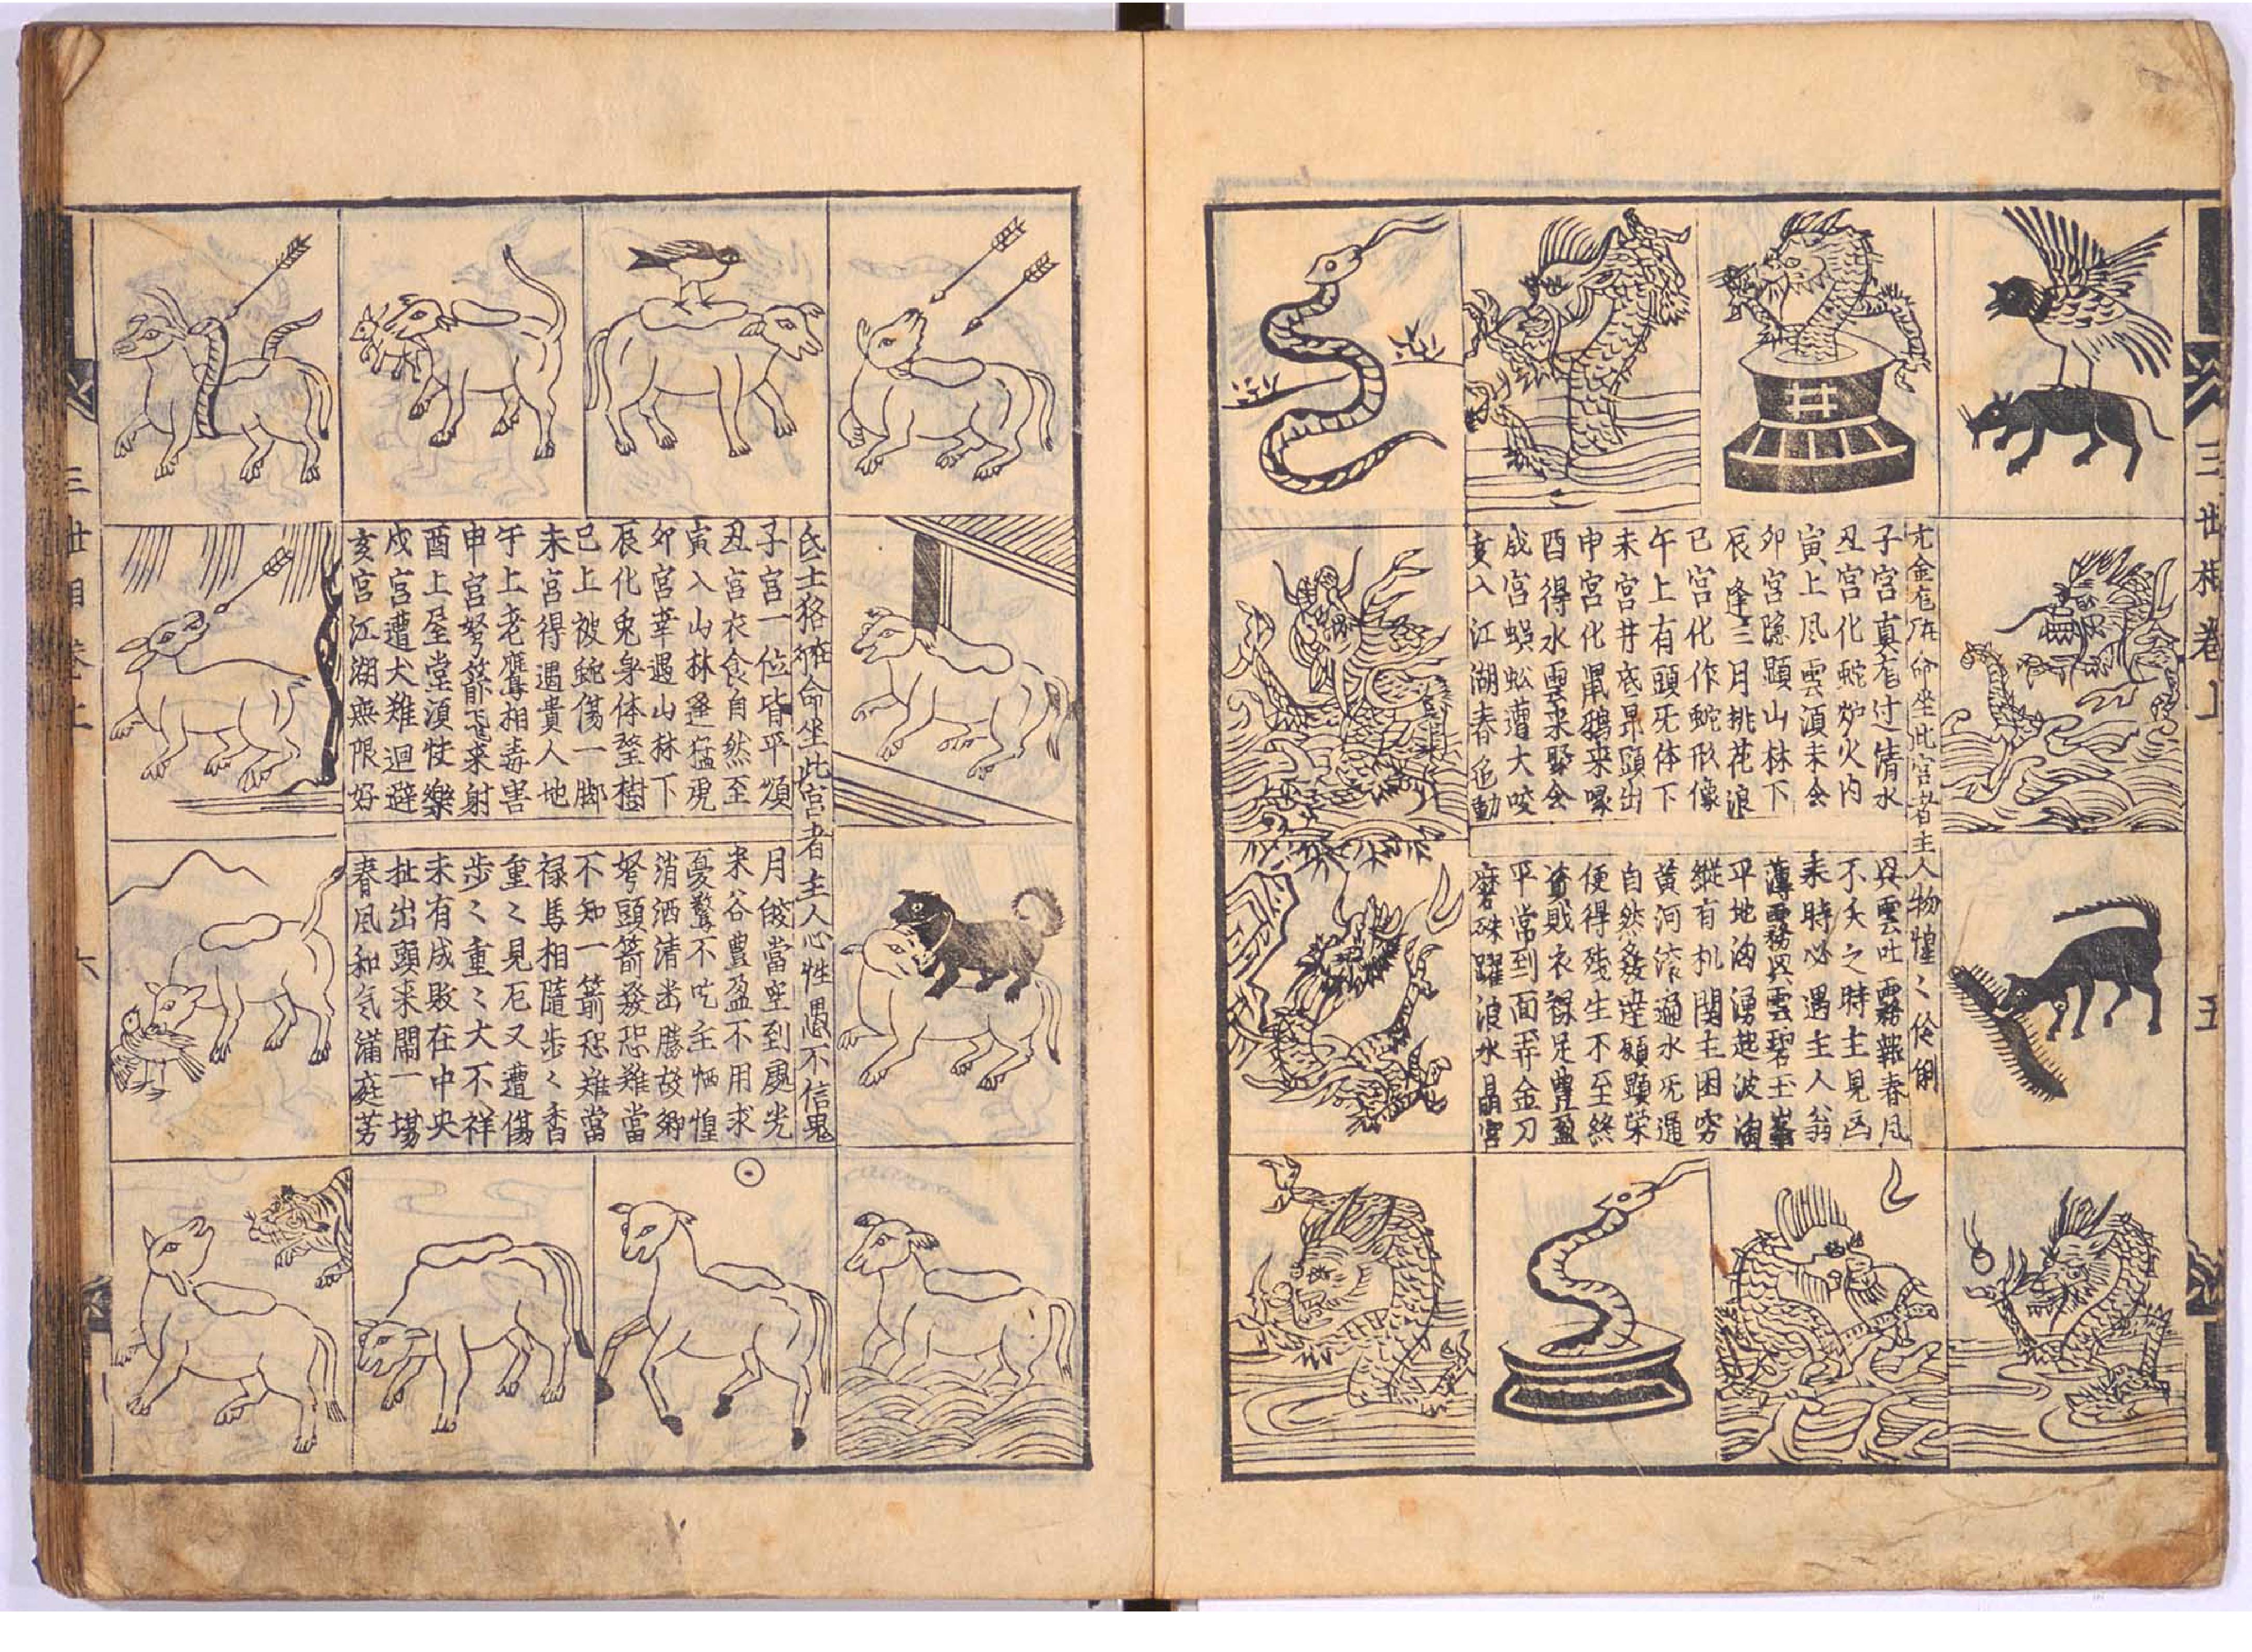 三世相卷上
五
井
亢金龍在命坐此宮者主人物惶〻伶俐
子宮真龍过清水
丑宮化蛇炉火內
寅上风雲湏未会
卯宮隐顕山林下
辰逢三月桃花浪
巳宮化作蛇形像
午上有頭旡体下
未宮井底昂頭出
申宮化鼠鴉来啄
酉得水雲来聚会
戌宮蜈蚣遭犬咬
亥入江湖春色動
興雲吐霧報春风
不久之時主見凶
未時必遇主人翁
薄霧興雲碧玉峯
平地洶湧起波濤
縱有机関主困穷
黄河滚過水旡通
自然發達顕顕荣
便得残生不至終
資財衣禄足豊盈
平常到面弄金刀
磨硃躍浪水晶宮
氐土狢在命坐此宮者主人心性愚不信鬼
子宮一位皆平順
丑宮衣食自然至
寅入山林逢猛虎
卯宮幸遇山林下
辰化兎身体登樹
巳上被蛇傷一脚
未宮得遇貴人地
午上老鷹相毒害
申宮弩箭飞来射
酉上屋堂湏快樂
戌宮遭犬難迴避
亥宮江湖無限好
月皎當空到處光
米谷豊盈不用求
憂驚不吃主恓惶
消洒清出勝故鄉
弩頭箭發恐難當
不知一箭恐難當
禄馬相隨步〻香
重〻見厄又遭傷
步〻重〻大不祥
未有成敗在中央
扯出頭来閙一場
春风和气滿庭芳
三世相卷上
六